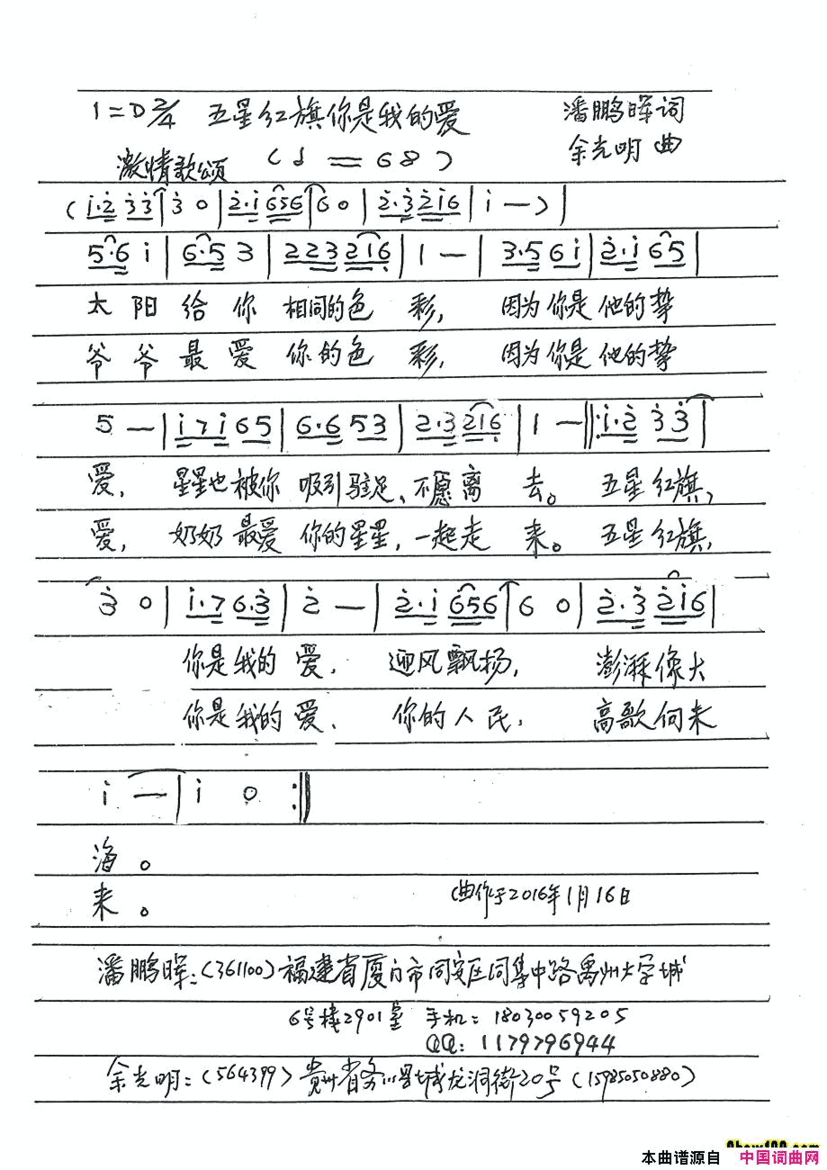 1=D 2/4 五星红旗你是我的爱 潘鹏晖词
激情歌颂 (♩=68) 余光明曲
(i·2̇ 3̇3̇|3̇ 0|2̇·i 656|6 0|2̇·3̇ 2̇i6|i —)|
5·6 i|6·5 3|223 216|1 —|3·5 6i|2̇·i 65|
太阳给你 相同的色彩, 因为你是他的挚
爷爷最爱 你的色彩, 因为你是他的挚
5 —|i7i 65|6·6 53|2·3 216|1 —‖:i·2̇ 3̇3̇|
爱, 星星也被你 吸引驻足、不愿离去。 五星红旗,
爱, 奶奶最爱 你的星星, 一起走来。 五星红旗,
3̇ 0|i·7 6·3̇|2̇ —|2̇·i 656|6 0|2̇·3̇ 2̇i6|
你是我的爱. 迎风飘扬, 澎湃像大
你是我的爱. 你的人民, 高歌向未
i —|i 0:‖
海。
来。 曲作于2016年1月16日
潘鹏晖:(361100)福建省厦门市同安区同集中路禹州大学城
6号楼2901室 手机:18030059205
QQ:1179796944
余光明:(564399)贵州省务川县城龙洞街20号(15985050880)
本曲谱源自 中国词曲网